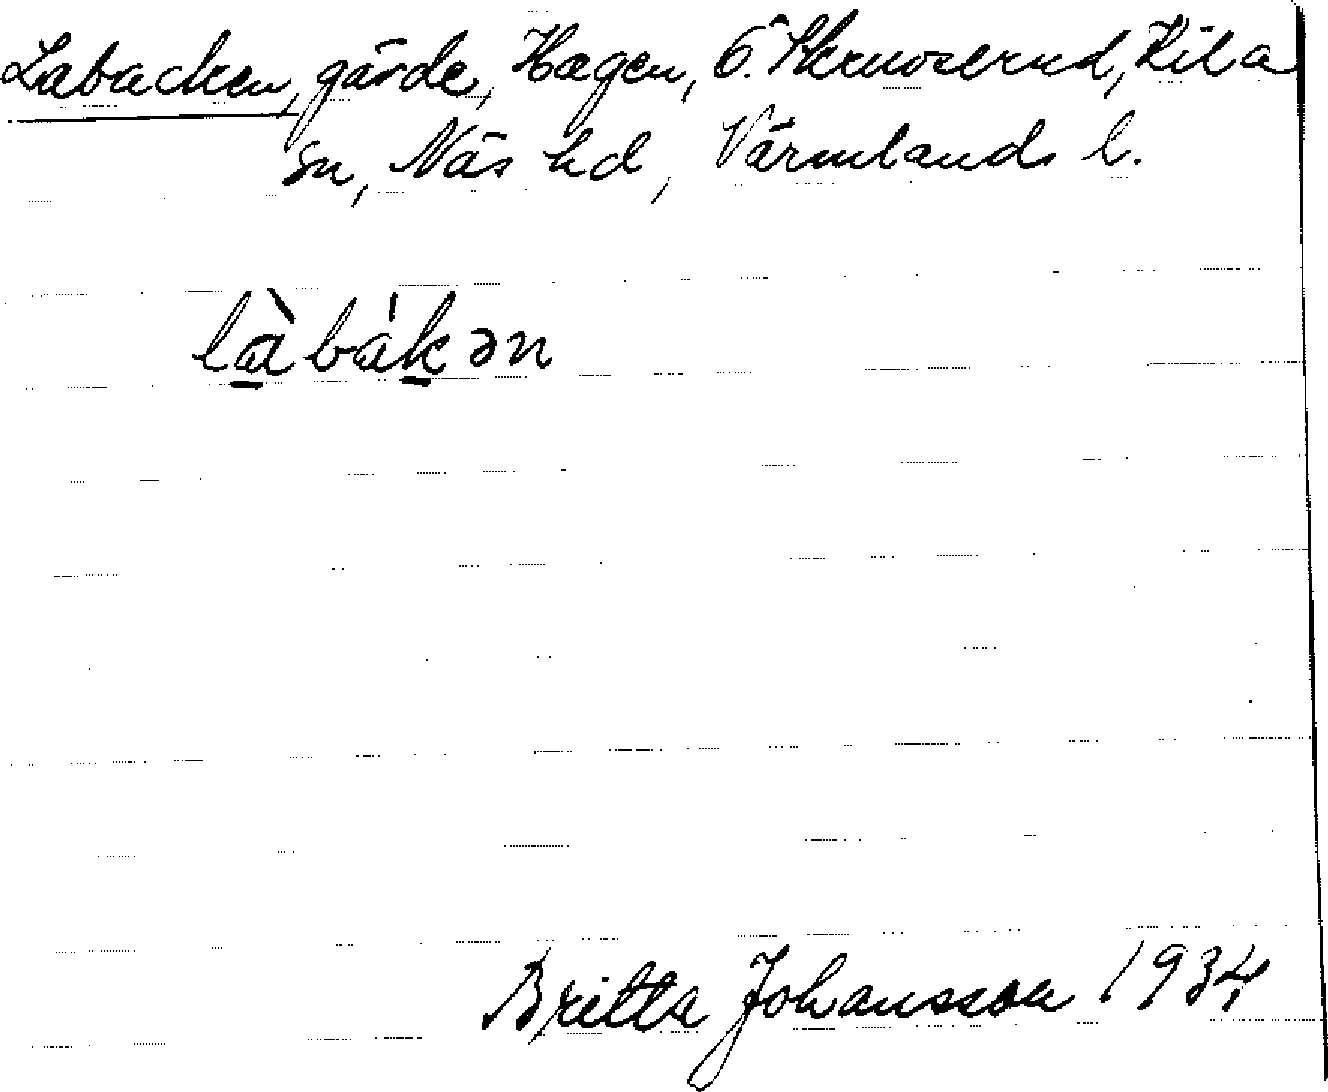 Labacken, gärde, Hagen, Ö. Skruvserud, Kila
sn, Näs hd, Värmlands l.
làbàkən
Britta Johansson 1934